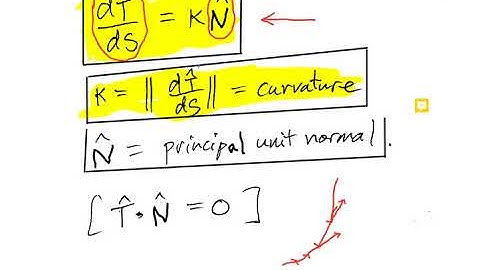 dT̂/ds = κ N̂
κ = ‖ dT̂/ds ‖ = curvature
N̂ = principal unit normal.
[ T̂ · N̂ = 0 ]